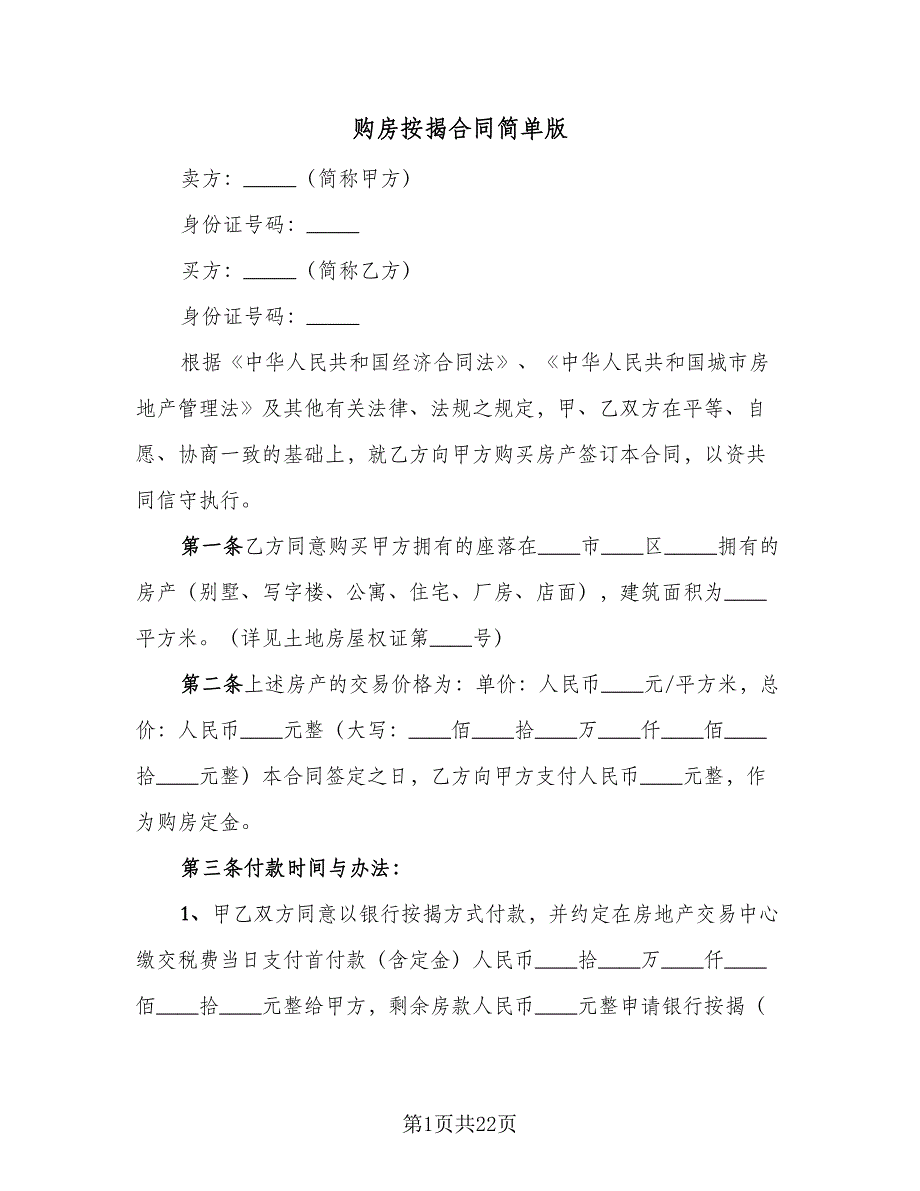 购房按揭合同简单版
卖方：_____（简称甲方）
身份证号码：_____
买方：_____（简称乙方）
身份证号码：_____
根据《中华人民共和国经济合同法》、《中华人民共和国城市房
地产管理法》及其他有关法律、法规之规定，甲、乙双方在平等、自
愿、协商一致的基础上，就乙方向甲方购买房产签订本合同，以资共
同信守执行。
第一条乙方同意购买甲方拥有的座落在____市____区_____拥有的
房产（别墅、写字楼、公寓、住宅、厂房、店面），建筑面积为____
平方米。（详见土地房屋权证第____号）
第二条上述房产的交易价格为：单价：人民币____元/平方米，总
价：人民币____元整（大写：____佰____拾____万____仟____佰____
拾____元整）本合同签定之日，乙方向甲方支付人民币____元整，作
为购房定金。
第三条付款时间与办法：
1、甲乙双方同意以银行按揭方式付款，并约定在房地产交易中心
缴交税费当日支付首付款（含定金）人民币____拾____万____仟____
佰____拾____元整给甲方，剩余房款人民币____元整申请银行按揭（
第1页共22页